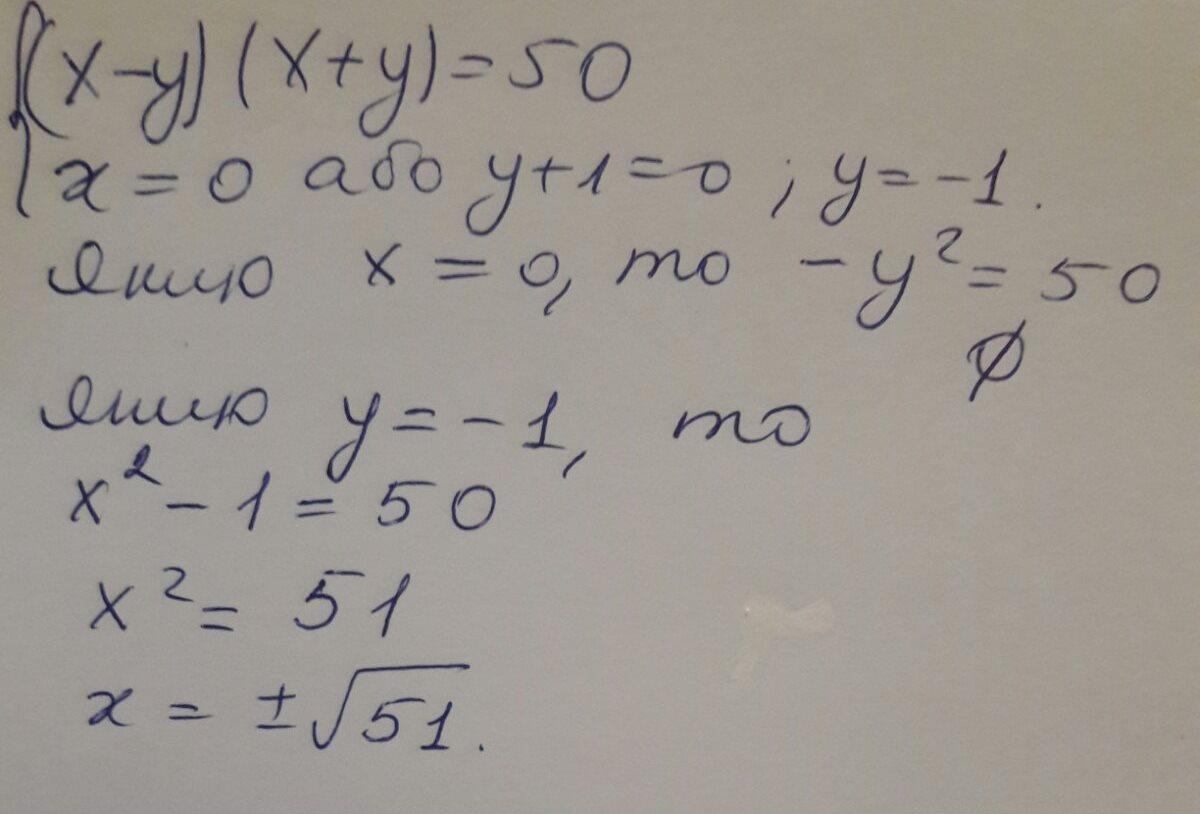 {(x-y)(x+y)=50
x=0 або y+1=0; y=-1.
якщо x=0, то -y²=50
∅
якщо y=-1, то
x²-1=50
x²=51
x=±√51.